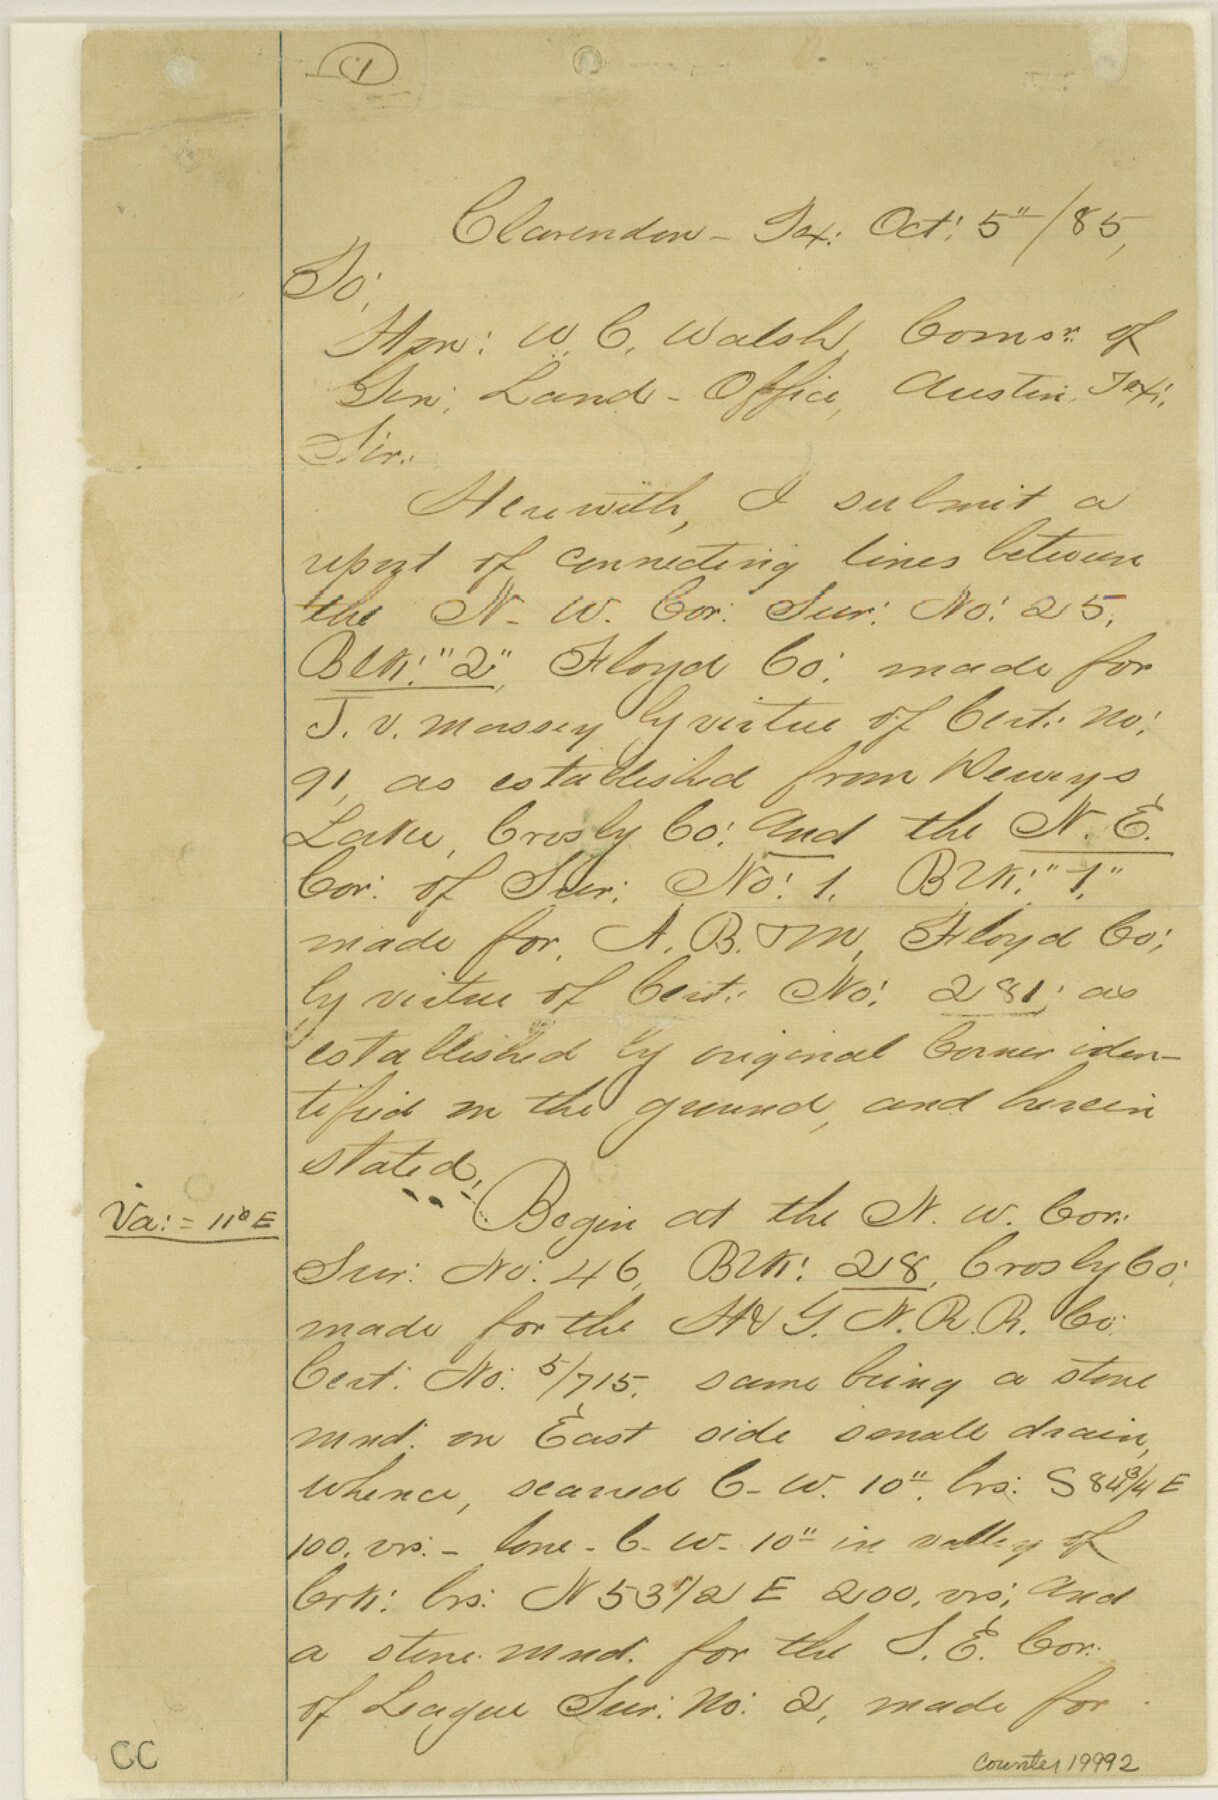 1
Clarendon - Tex: Oct: 5"/85,
To;
Hon: W. C. Walsh, Comsr: of
Gen; Land - Office, Austin, Tex:,
Sir:
Herewith, I submit a
report of connecting lines between
the N. W. Cor: Sur: No: 25,
Blk: "2", Floyd Co; made for
J. V. Massey by virtue of Cert: No:
91, as established from Deweys
Lake, Crosby Co: And the N. E.
Cor: of Sur: No: 1, Blk: "1,"
made for, A. B. & M, Floyd Co;
by virtue of Cert: No: 281; as
established by original Corner iden-
tified on the ground, and herein
stated;
Begin at the N. W. Cor:
Va: = 11° E
Sur: No: 46, Blk: 28, Crosby Co;
made for the H & G. N. R. R. Co:
Cert: No: 5/715, same being a stone
mnd: on East side small drain,
whence, scarred C- W. 10" brs: S 84 3/4 E
100. vrs. - lone - C- W- 10" in valley of
Crk: brs: N 53 1/2 E 200, vrs; And
a stone mnd: for the S. E. Cor:
of League Sur: No: 2, made for
CC
Counter 19992